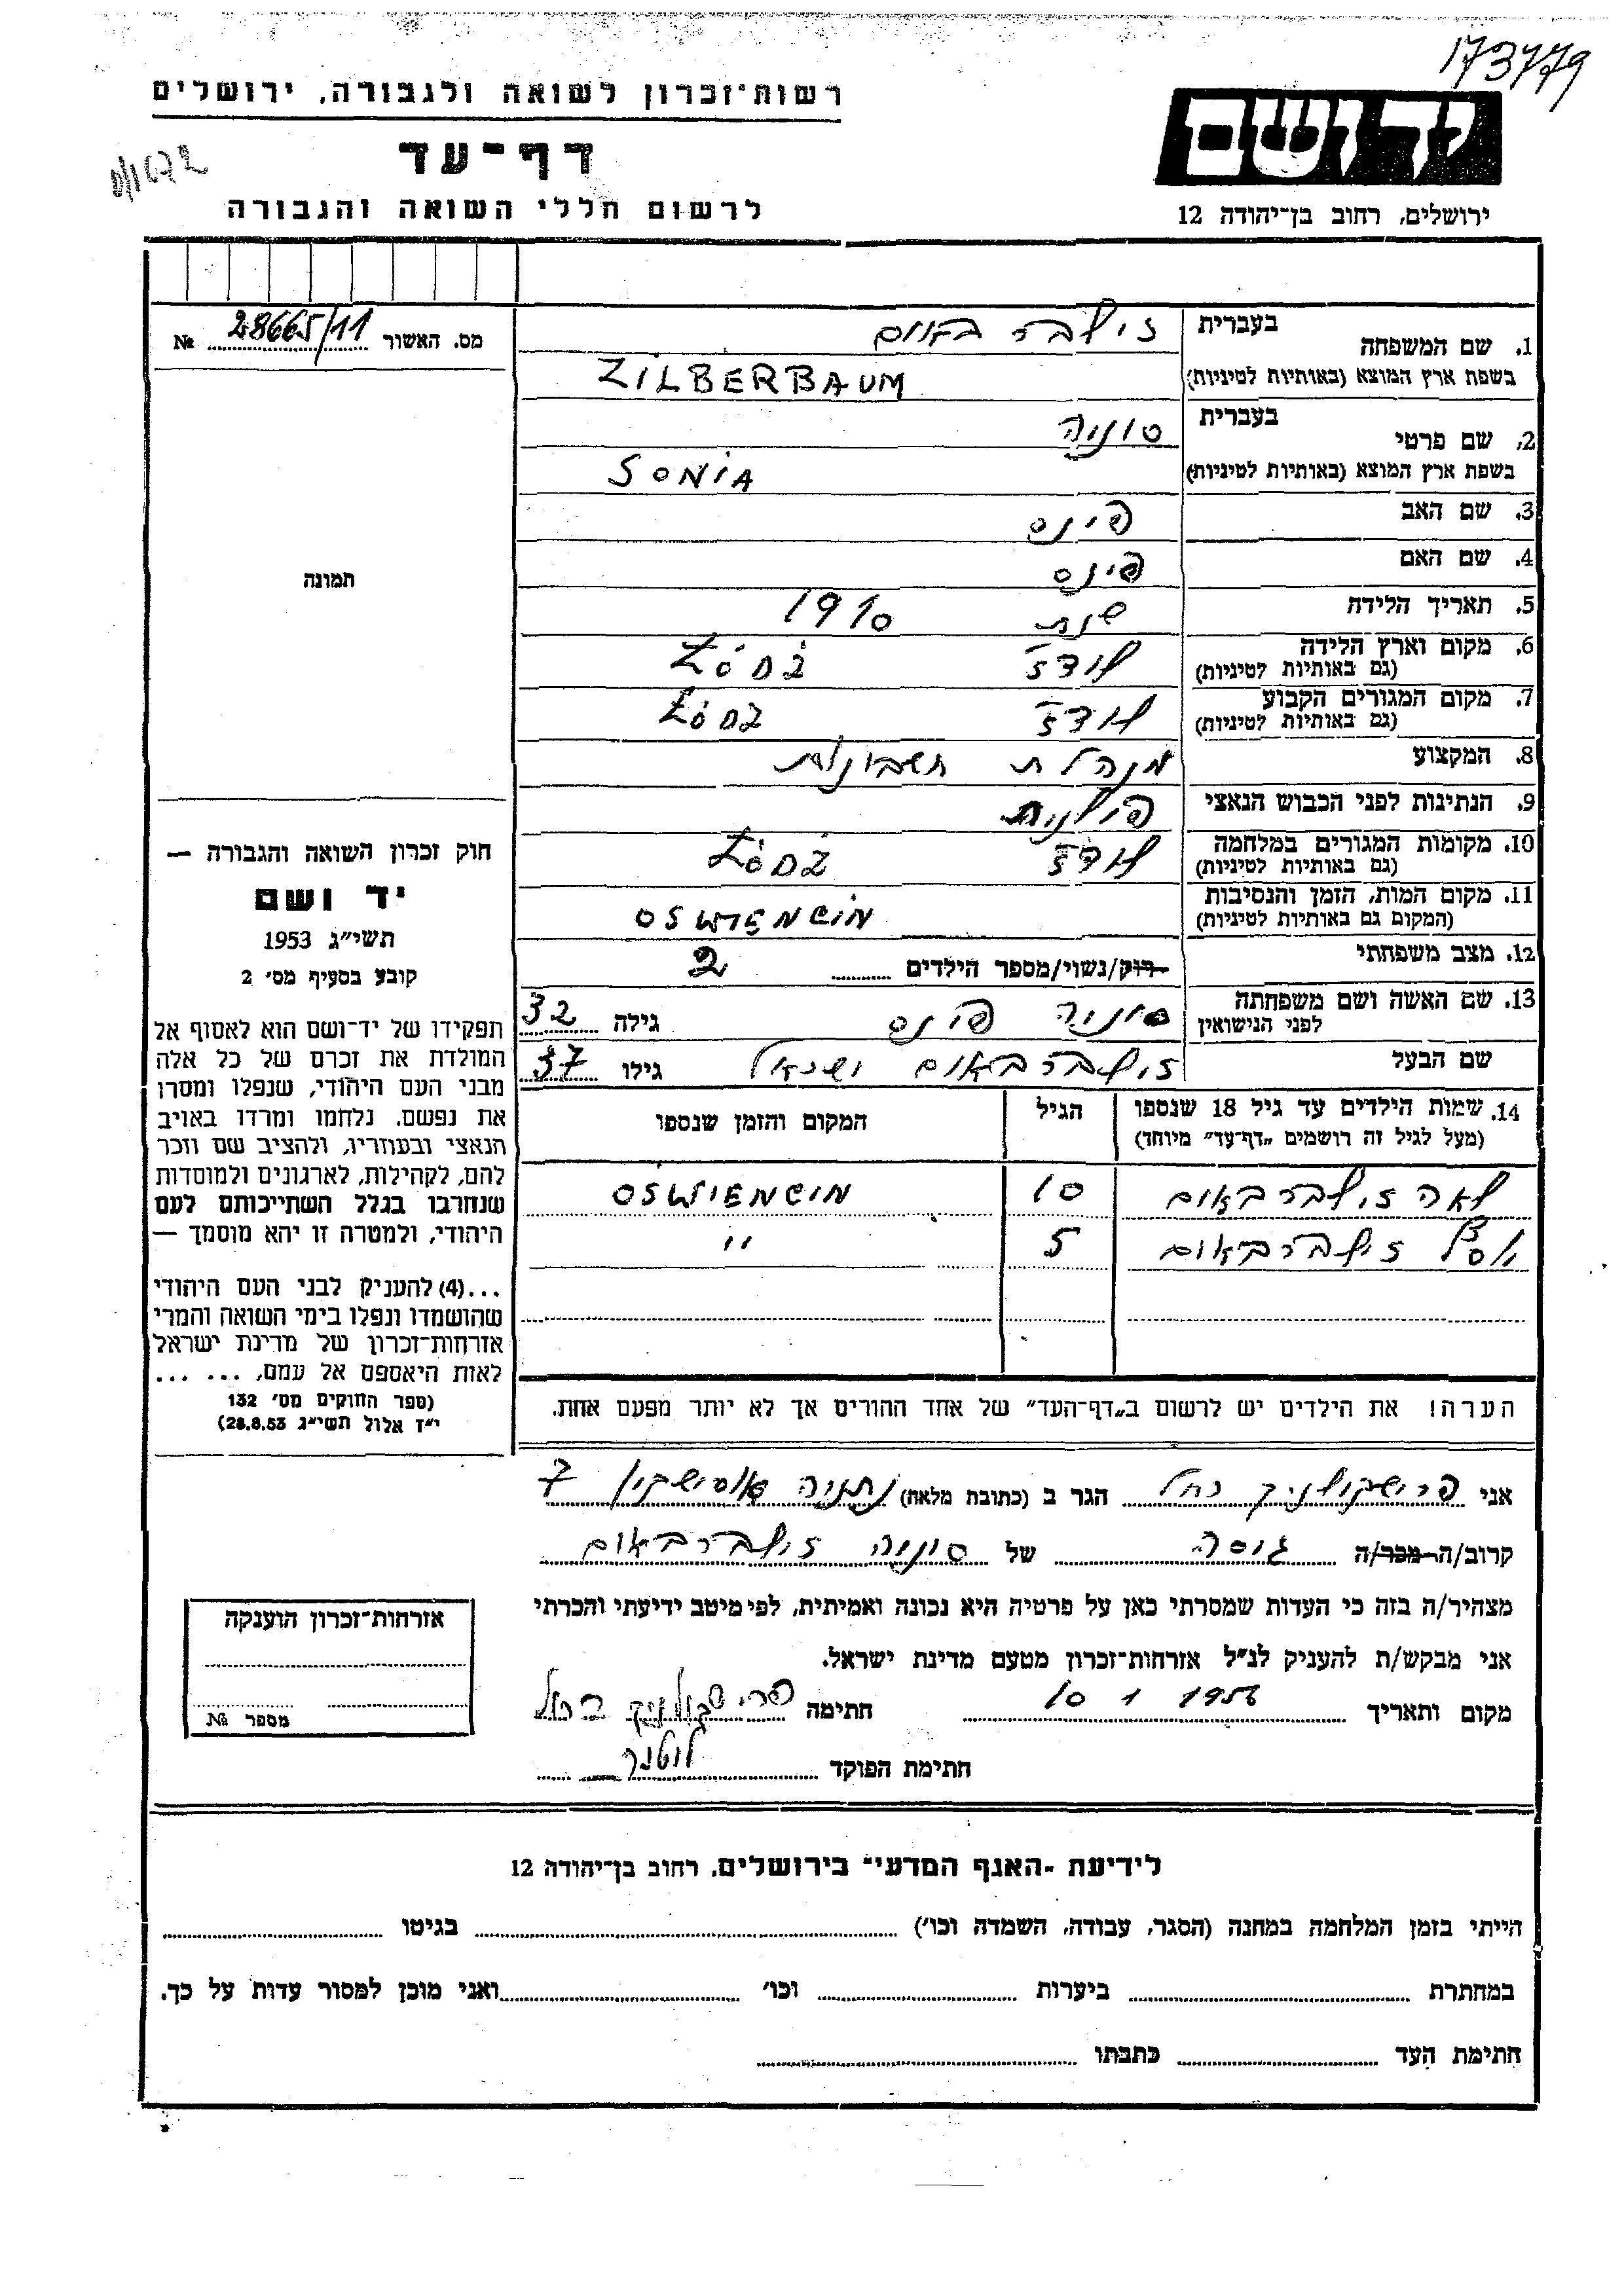 173779
רשות־זכרון לשואה ולגבורה, ירושלים
יד ושם
דף־עד
לרשום חללי השואה והגבורה
ירושלים, רחוב בן־יהודה 12
מס. האשור 28665/11 №
בעברית
1. שם המשפחה זילברבאום
בשפת ארץ המוצא (באותיות לטיניות) ZILBERBAUM
בעברית
2. שם פרטי סוניה
בשפת ארץ המוצא (באותיות לטיניות) SONIA
3. שם האב פינס
4. שם האם פינס
5. תאריך הלידה שנת 1910
6. מקום וארץ הלידה לודז ŁÓDŻ
(גם באותיות לטיניות)
7. מקום המגורים הקבוע לודז ŁÓDZ
(גם באותיות לטיניות)
8. המקצוע מנהלת חשבונות
9. הנתינות לפני הכבוש הנאצי פולנית
10. מקומות המגורים במלחמה לודז ŁÓDŻ
(גם באותיות לטיניות)
11. מקום המות, הזמן והנסיבות OSWIENCIN
(המקום גם באותיות לטיניות)
12. מצב משפחתי רוק/נשוי/מספר הילדים 2
13. שם האשה ושם משפחתה סוניה פינס גילה 32
לפני הנישואין
שם הבעל זילברבאום ישראל גילו 37
14. שמות הילדים עד גיל 18 שנספו הגיל המקום והזמן שנספו
(מעל לגיל זה רושמים „דף־עד" מיוחד)
לאה זילברבאום 10 OSWIENCIN
זילברבאום 5 "
הערה! את הילדים יש לרשום ב„דף־העד" של אחד ההורים אך לא יותר מפעם אחת.
תמונה
חוק זכרון השואה והגבורה —
יד ושם
תשי"ג 1953
קובע בסעיף מס׳ 2
תפקידו של יד־ושם הוא לאסוף אל
המולדת את זכרם של כל אלה
מבני העם היהודי, שנפלו ומסרו
את נפשם, נלחמו ומרדו באויב
הנאצי ובעוזריו, ולהציב שם וזכר
להם, לקהילות, לארגונים ולמוסדות
שנחרבו בגלל השתייכותם לעם
היהודי, ולמטרה זו יהא מוסמך —
...(4) להעניק לבני העם היהודי
שהושמדו ונפלו בימי השואה והמרי
אזרחות־זכרון של מדינת ישראל
לאות היאספם אל עמם, ... ...
(ספר החוקים מס׳ 132
י"ד אלול תשי"ג 28.8.53)
אני פרישקולניק רחל הגר ב (כתובת מלאה) נתניה אוסישקין 7
קרוב/ה מכר/ה גיסה של סוניה זילברבאום
מצהיר/ה בזה כי העדות שמסרתי כאן על פרטיה היא נכונה ואמיתית, לפי מיטב ידיעתי והכרתי
אני מבקש/ת להעניק לנ"ל אזרחות־זכרון מטעם מדינת ישראל.
מקום ותאריך 10 1 1956 חתימה פרישקולניק רחל
חתימת הפוקד
אזרחות־זכרון הוענקה
מספר №
לידיעת ־האגף המדעי־ בירושלים, רחוב בן־יהודה 12
הייתי בזמן המלחמה במחנה (הסגר, עבודה, השמדה וכו׳) בגיטו
במחתרת ביערות וכו׳ ואני מוכן למסור עדות על כך.
חתימת העד כתבתו